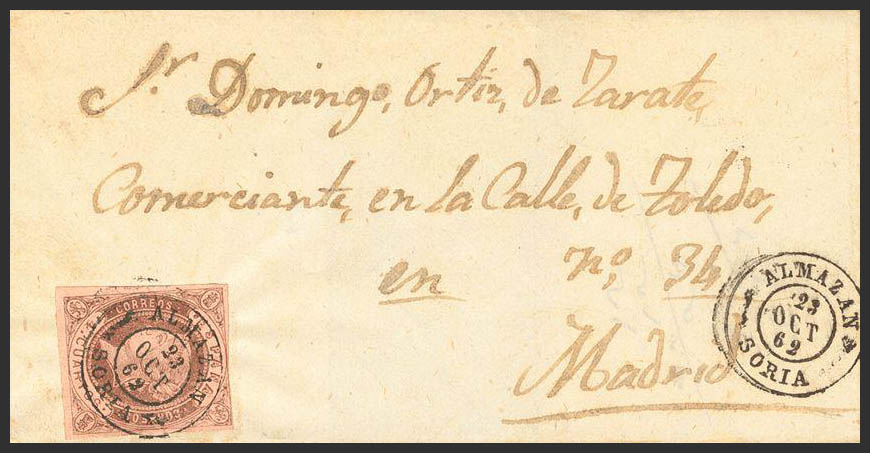 Sr Domingo, Ortiz, de Zarate,
Comerciante, en la Calle, de Toledo,
en nº, 34
Madrid
ALMAZAN
23
OCT
62
SORIA
CORREOS
ALMAZAN
23
OCT
62
SORIA